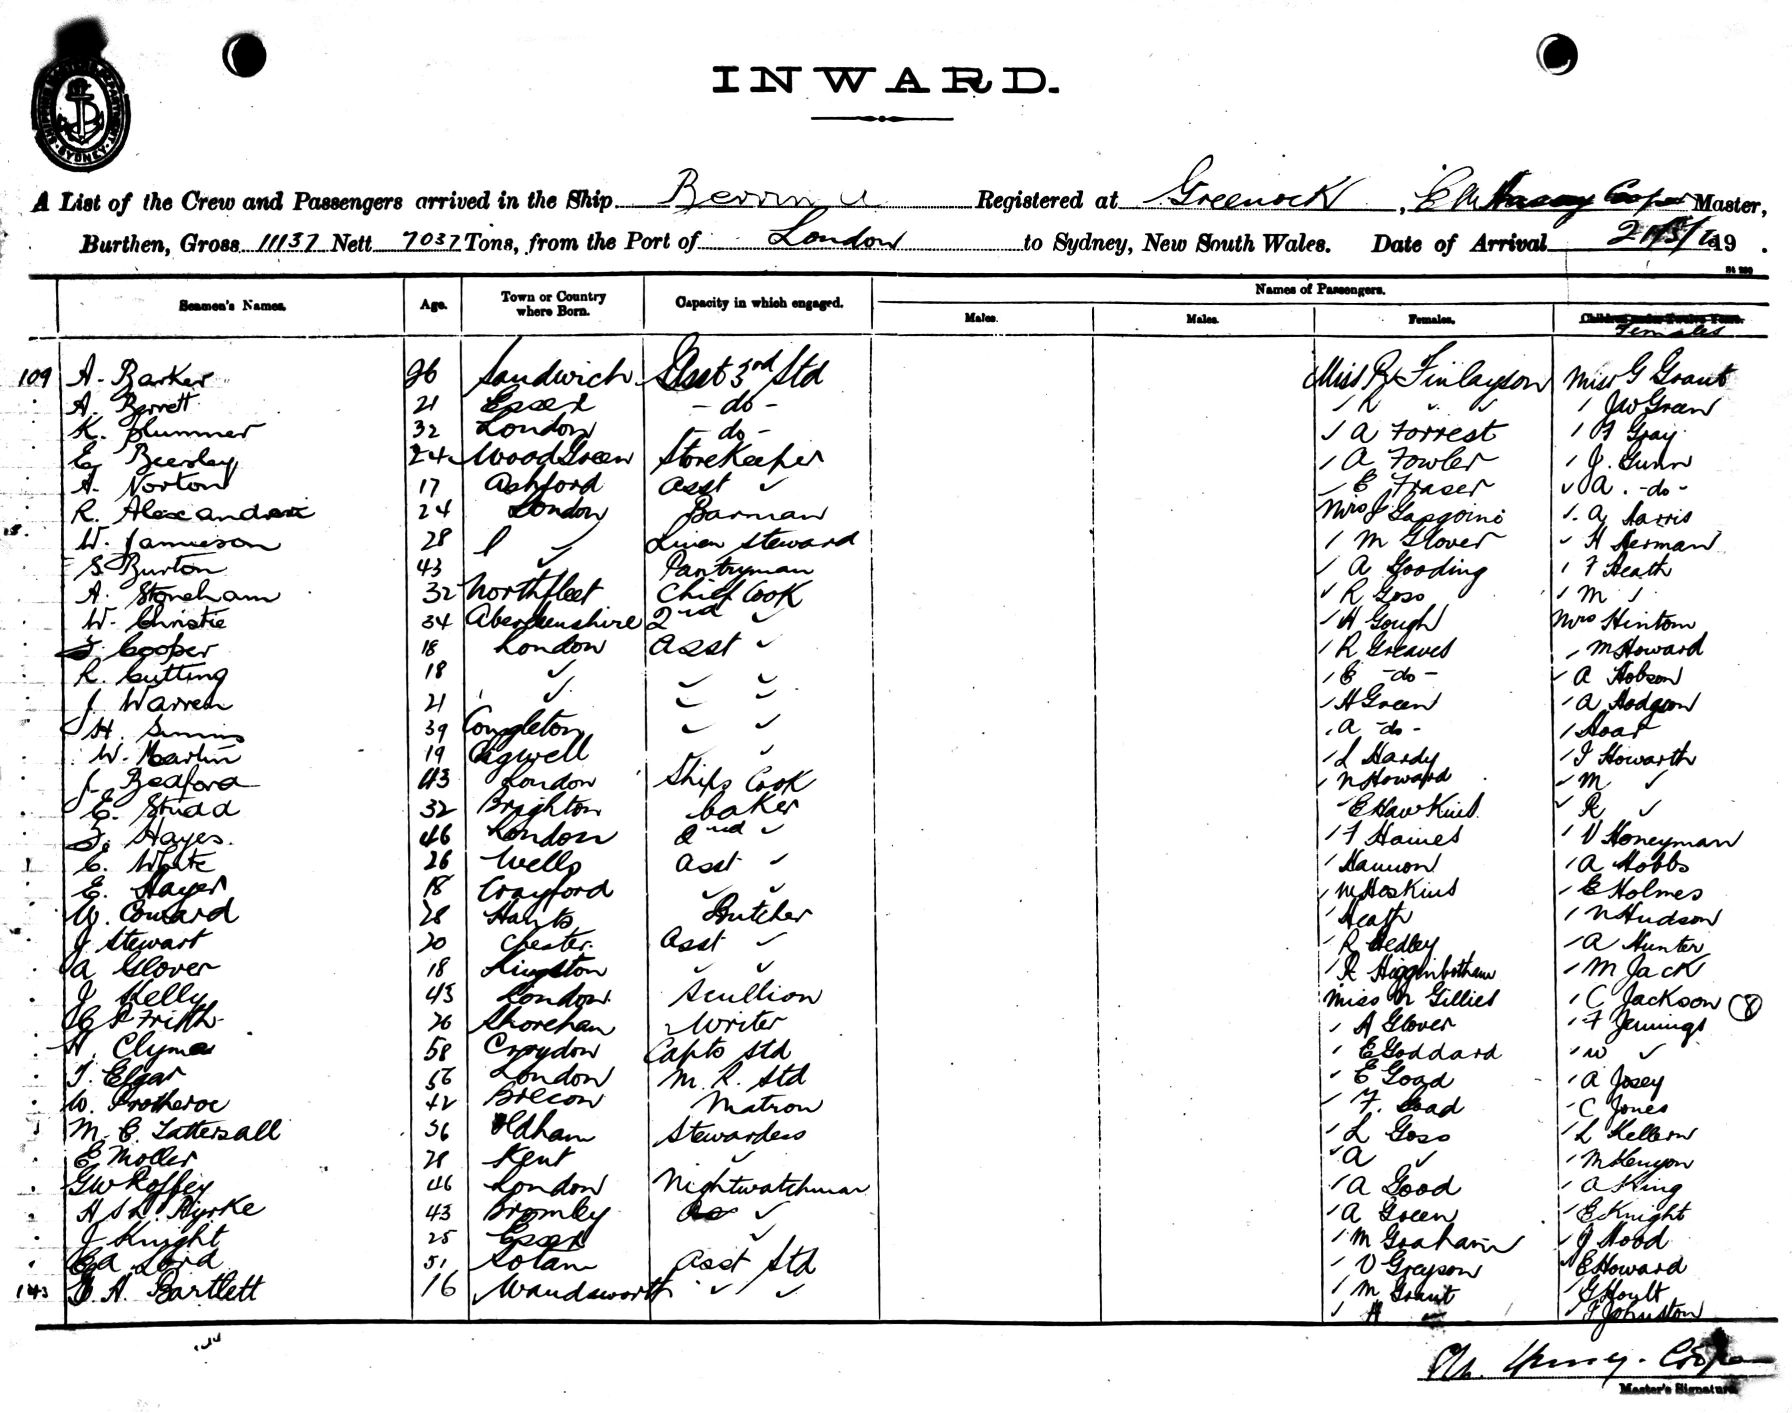 INWARD.
SYDNEY
A List of the Crew and Passengers arrived in the Ship Berrima Registered at Greenock, Master,
Burthen, Gross 11137 Nett 7037 Tons, from the Port of London to Sydney, New South Wales. Date of Arrival 19 .
Names of Passengers.
Seamen's Names. Age. Town or Country where Born. Capacity in which engaged. Males. Males. Females. Children under Twelve Years. Females
109 A. Barker 26 Sandwich Asst 3rd Std Miss R Finlayson Miss G Grant
A. Barrett 21 Essex - do - " R " " " J W Green
K. Plummer 32 London - do - " A Forrest " F Gray
E. Beesley 24 Wood Green Storekeeper " A Fowler " J. Gunn
A. Norton 17 Ashford Asst " " E Fraser " A. - do -
R. Alexandra 24 London Barman Mrs J " A Harris
W. Jamieson 28 " Linen Steward " M Glover " H Herman
S Burton 43 " Pantryman " A Gooding " F Heath
A. Stoneham 32 Northfleet Chief Cook " R Goss " M "
W. Christie 34 Aberdeenshire 2nd " " H Gough Mrs Hinton
Cooper 18 London Asst " " R Greaves " M Howard
R. Cutting 18 " " " " E - do - " A Hobson
J Warren 21 " " " " H Green " A Hodgson
H. Simms 39 Congleton " " " A - do - " Hoar
W. Martin 19 " " L Hardy " I Howarth
J. Bedford 43 London Ships Cook " N Howard " M "
E. Studd 32 Brighton baker " E Hawkins " R "
Hayes. 46 London 2nd " " F Haines " V Honeyman
C. White 26 Wells Asst " " Hannon " A Hobbs
E. Hayer 18 Crayford " " " M Hoskins " E Holmes
W. Coward 28 Hants Butcher " Heath " N Hudson
J Stewart 20 Chester Asst " " R Hedley " A Hunter
A Glover 18 Kingston " " " R Higginbotham " M Jack
J Kelly 43 London Scullion Miss N Gillies " C Jackson (8)
C P Frith 26 Shoreham Writer " A Glover " F Jennings
H. Clyma 58 Croydon Capts Std " E Goddard " W "
T. Elgar 56 London M. R. Std " E Goad " A Josey
W. Protheroe 42 Brecon Matron " F. Goad " C Jones
M. E. Tattersall 36 Oldham Stewardess " L Goss " L Kellern
E Moller 28 Kent " " A " " M Kenyon
G W Roffey 46 London Nightwatchman " A Good " A King
H S L. Kyrke 43 Bromley " " A Green " E Knight
J Knight 25 Essex " " M Graham " J Hood
E A Lord 51 Asst Std " V Greyson " E Howard
143 H. Bartlett 16 Wandsworth " " " M Grant " G Hoult
" A " " F Johnston
Master's Signature.